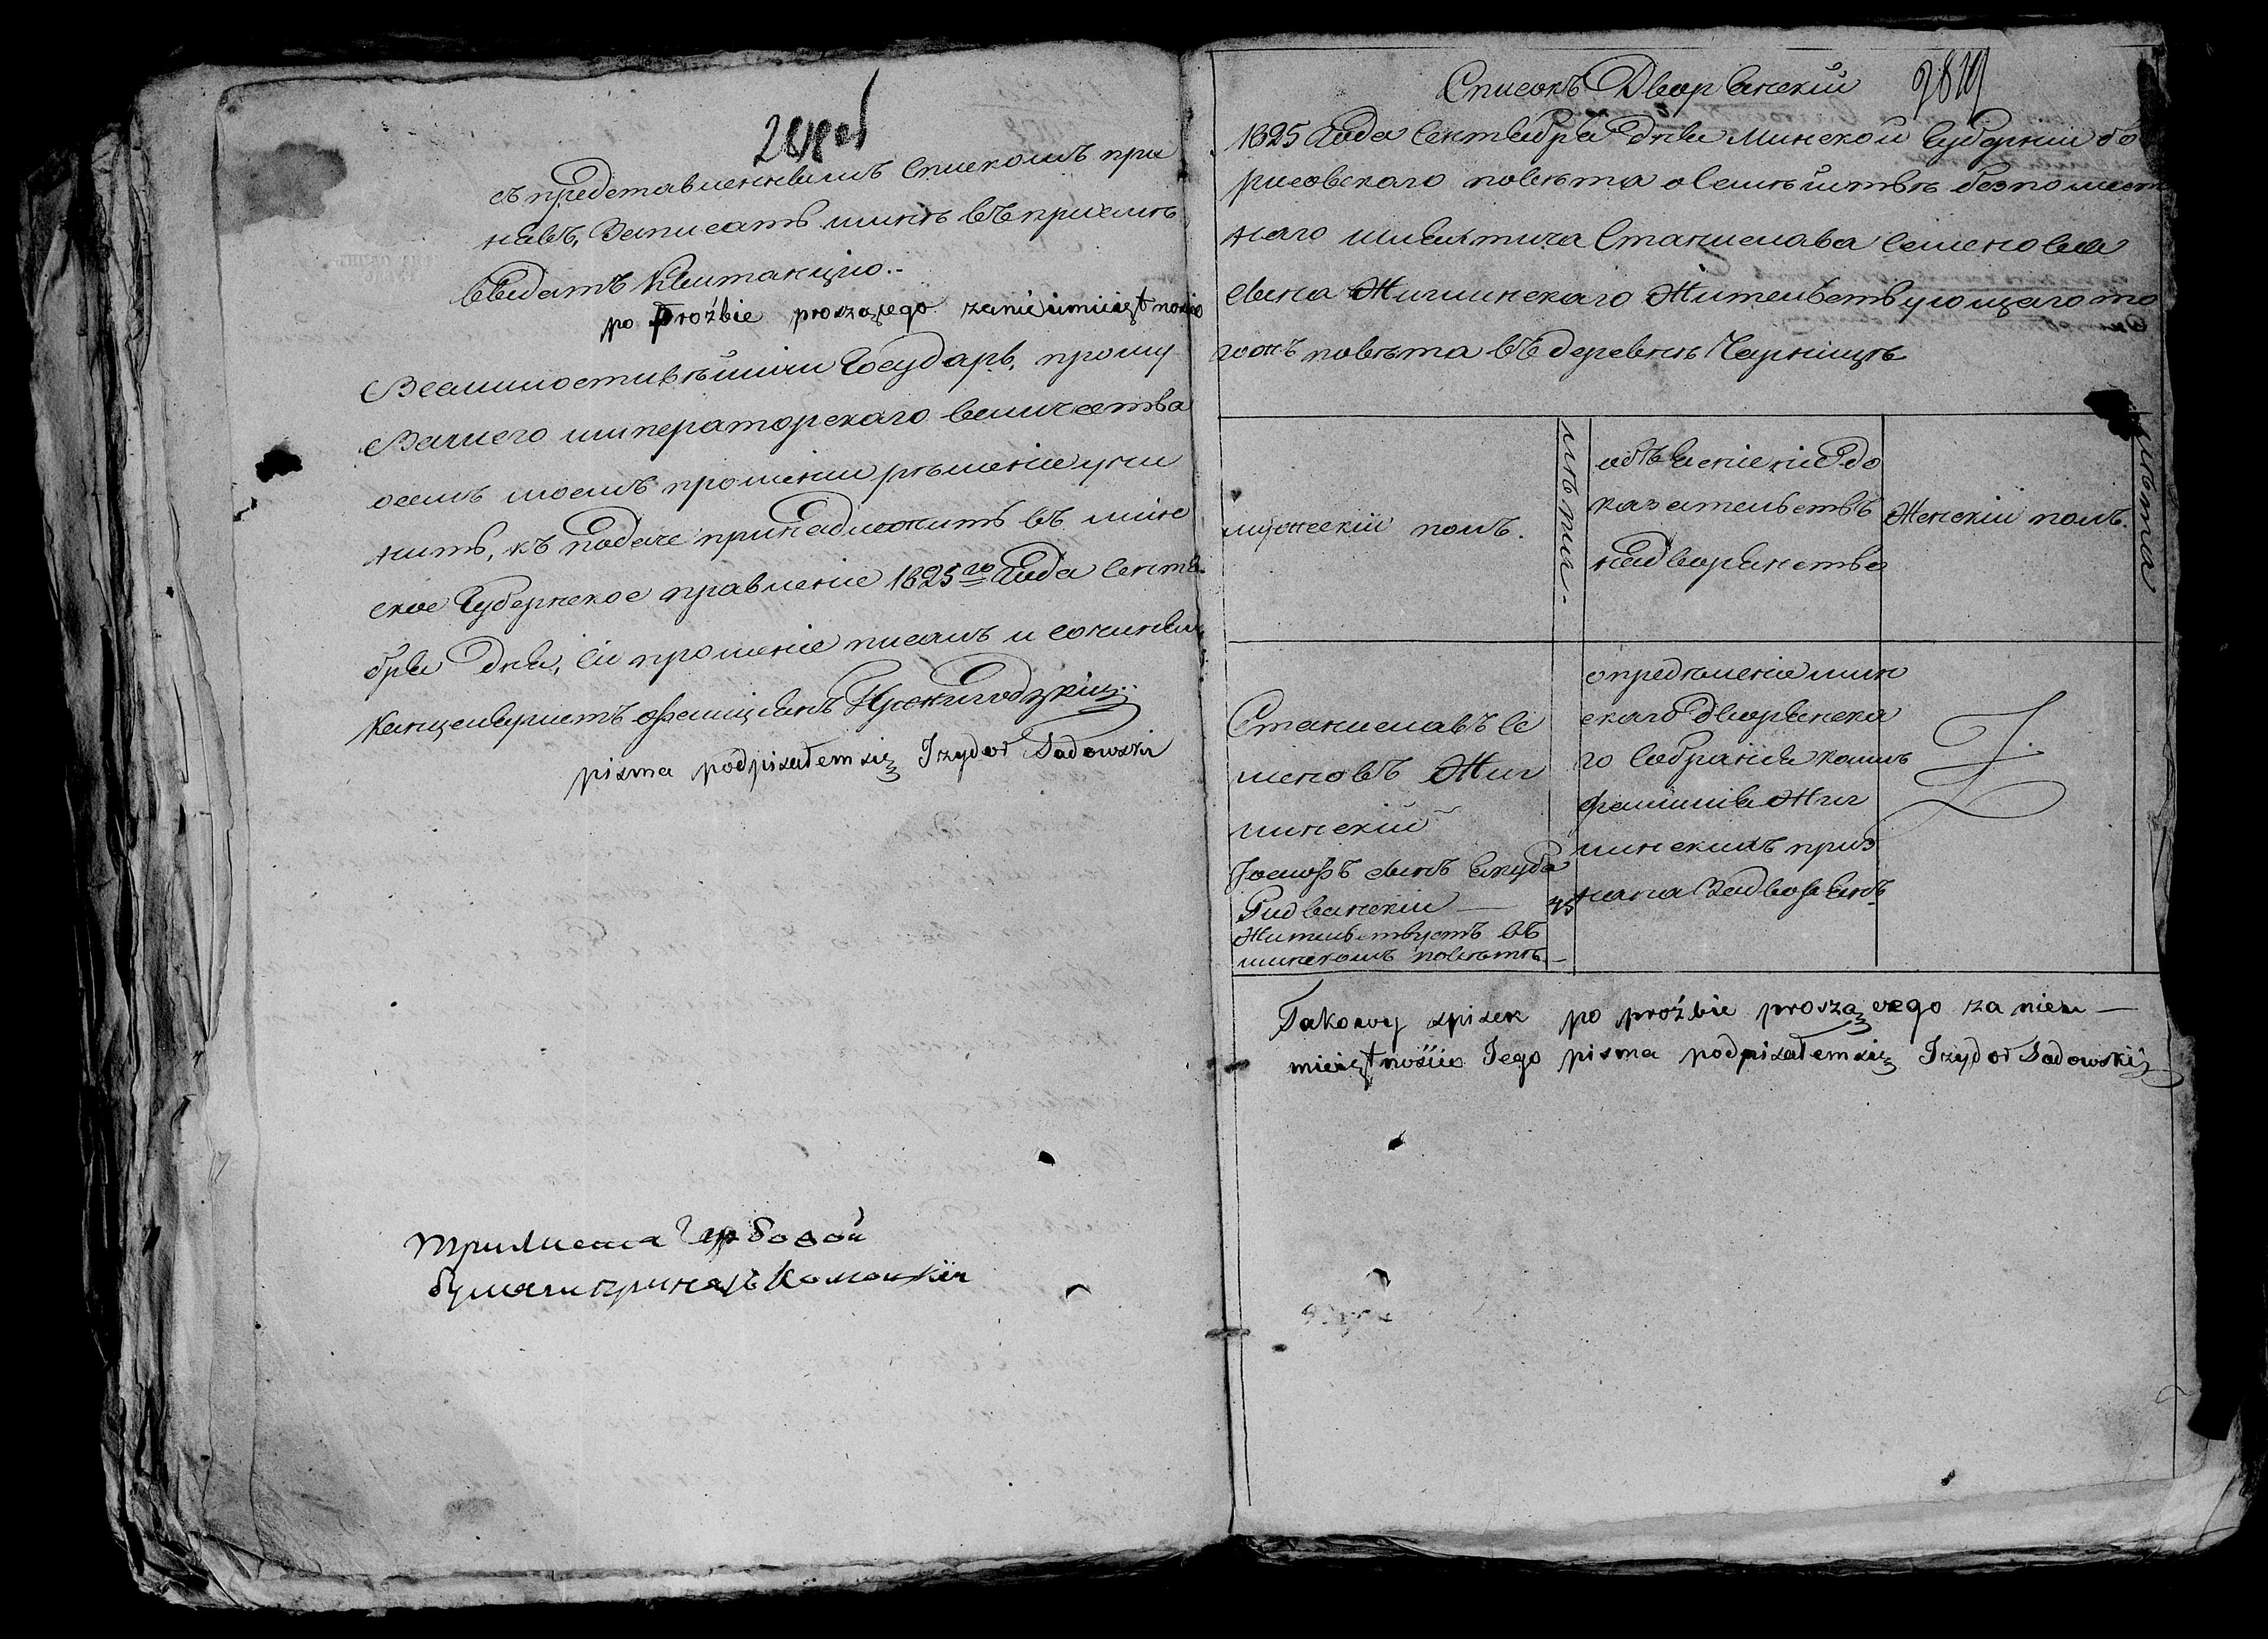 съ представленнымъ спискомъ при
нявъ, Записать. мнѣ въ приемѣ
выдать Квитанцію.-
po proźbie proszącego zanieumieiętnoscio
Всемилостивѣйшій Государь, прошу
Вашего императорскаго величества
осемъ моемъ прошеніи рѣшеніе учи
нить, къ подаче принадлежитъ въ мин
ское Губернское правленіе 1825го Года Сентя
бря Дня, сіе прошеніе писалъ и сочинялъ
Канцеляристъ
pisma podpisałem się Izydor Sadowski
три листа Гербовой
бумаги
Списокъ Дворянскій
1825 Года Сентября Дня Минской Губерніи бо
рисовскаго повѣта о семѣйствѣ безпомѣст
наго шляхтича Станислава Семенова
сына Жиглинскаго Жительствующаго то
гожъ повѣта въ деревнѣ Черницѣ
мужескій полъ.
лѣта.
объясненіе до
казательствъ
на дворянство
Женскій полъ.
лѣта
Станиславъ Се
меновъ Жиг
линскій
Іосифъ сынъ Якуба
Жительствуетъ въ
минскомъ повѣтѣ.
опредѣленіе мин
скаго дворянска
го Собранія коимъ
фамилія Жиг
линскихъ приз
нана За дворянъ
Takowy spisek po proźbie proszącego za nieu-
mieiętnościo Jego pisma podpisałem się Izydor Sadowski